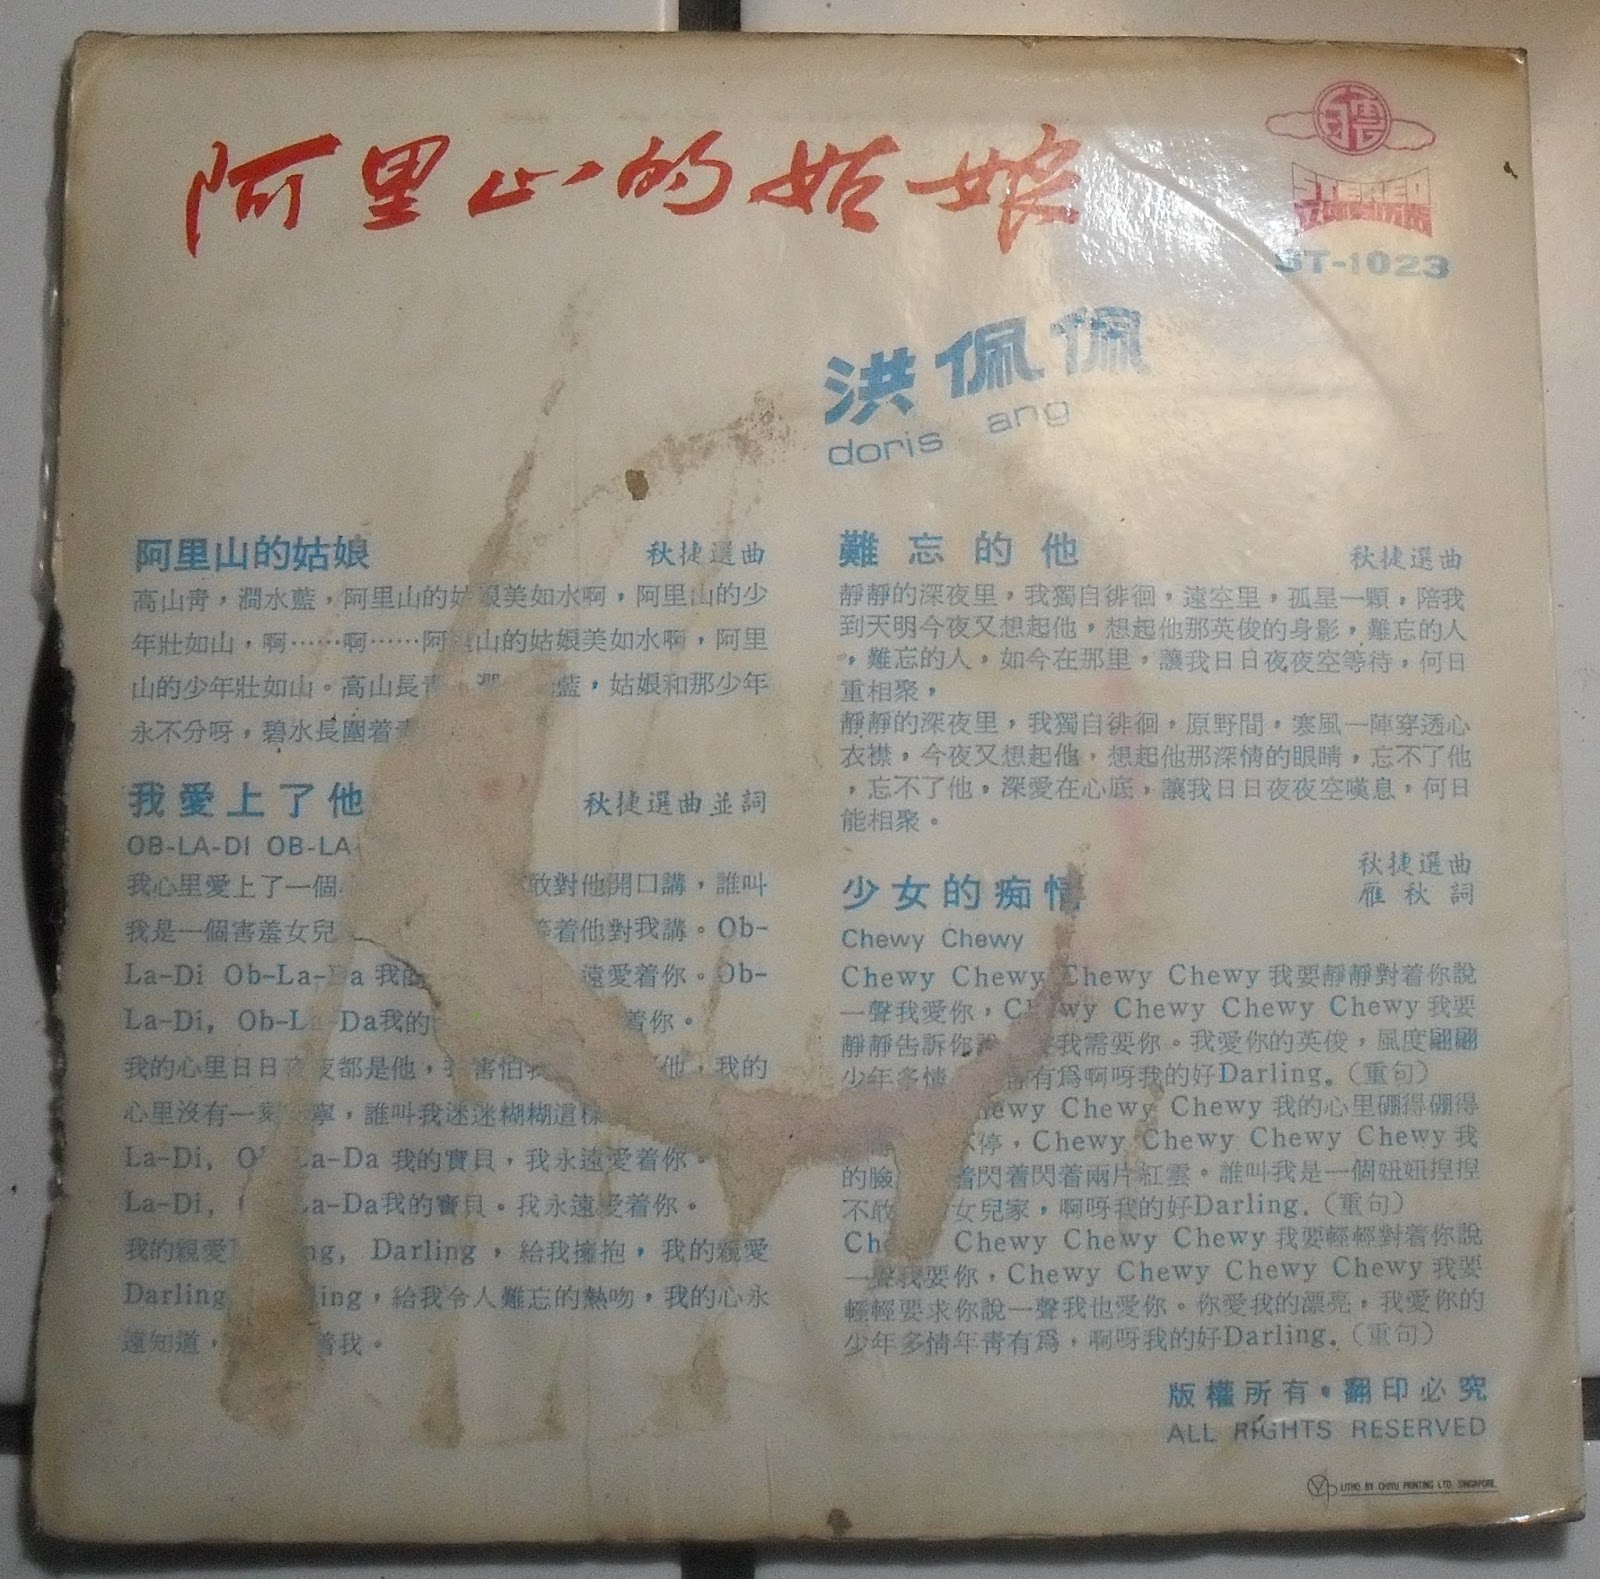 阿里山的姑娘
STEREO
ST-1023
洪佩佩
doris ang
阿里山的姑娘 秋捷選曲
高山靑，澗水藍，阿里山的姑娘美如水啊，阿里山的少
年壯如山，啊⋯⋯啊⋯⋯阿 山的姑娘美如水啊，阿里
山的少年壯如山。高山長靑 藍，姑娘和那少年
永不分呀，碧水長圍着靑
我愛上了他 秋捷選曲並詞
OB-LA-DI OB-LA
我心里愛上了一個 敢對他開口講，誰叫
我是一個害羞女兒 等着他對我講。Ob-
La-Di Ob-La-Da 我的 遠愛着你。Ob-
La-Di, Ob-La-Da我的 着你。
我的心里日日夜夜都是他，我害怕我 他，我的
心里沒有一刻 寧，誰叫我迷迷糊糊這樣
La-Di, Ob-La-Da 我的寶貝，我永遠愛着你。
La-Di, La-Da我的寶貝。我永遠愛着你。
我的親愛 ng, Darling，給我擁抱，我的親愛
Darling ling，給我令人難忘的熱吻，我的心永
遠知道， 着我。
難忘的他 秋捷選曲
靜靜的深夜里，我獨自徘徊，遠空里，孤星一顆，陪我
到天明今夜又想起他，想起他那英俊的身影，難忘的人
，難忘的人，如今在那里，讓我日日夜夜空等待，何日
重相聚，
靜靜的深夜里，我獨自徘徊，原野間，寒風一陣穿透心
衣襟，今夜又想起他，想起他那深情的眼睛，忘不了他
，忘不了他，深愛在心底，讓我日日夜夜空嘆息，何日
能相聚。
秋捷選曲
少女的痴情 雁秋詞
Chewy Chewy
Chewy Chewy Chewy Chewy 我要靜靜對着你說
一聲我愛你，Chewy Chewy Chewy Chewy 我要
靜靜告訴你說 我需要你。我愛你的英俊，風度翩翩
少年多情 有爲啊呀我的好Darling。（重句）
hewy Chewy Chewy 我的心里硼得硼得
不停，Chewy Chewy Chewy Chewy 我
的臉 着閃着閃着兩片紅雲。誰叫我是一個妞妞揑揑
不敢 女兒家，啊呀我的好Darling.（重句）
Che Chewy Chewy Chewy 我要輕輕對着你說
一聲我要你，Chewy Chewy Chewy Chewy 我要
輕輕要求你說一聲我也愛你。你愛我的漂亮，我愛你的
少年多情年靑有爲，啊呀我的好Darling。（重句）
版權所有・翻印必究
ALL RIGHTS RESERVED
LITHO BY CHIYU PRINTING LTD. SINGAPORE.